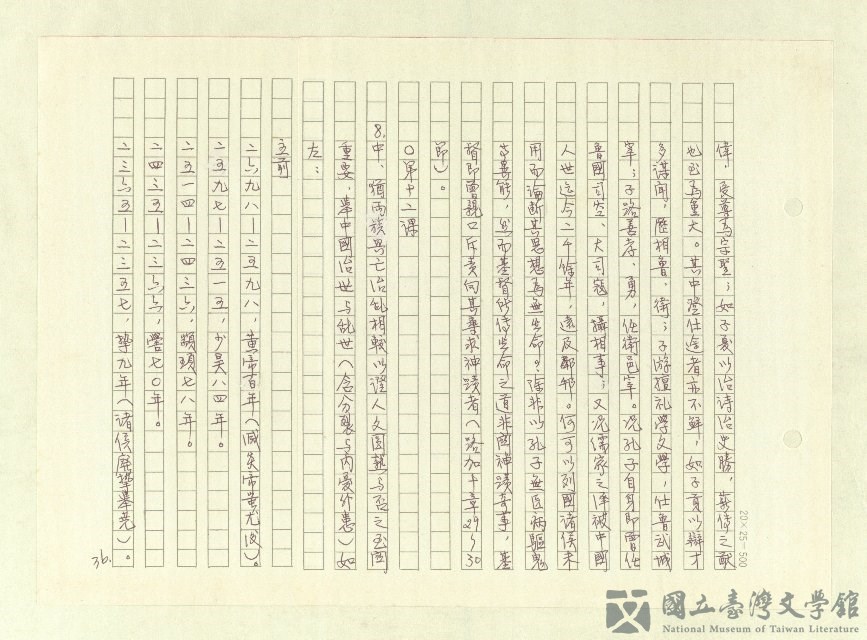 偉，良尊為宗聖；如子夏以治詩治史勝，彰傳之獻
也至為重大。其中登仕途者亦不鮮，如子貢以辯才
多謀聞，歷相魯、衛；子游擅礼學文學，仕魯武城
宰；子路善孝、勇，仕衛邑宰。況孔子自身即曾任
魯國司空、大司寇，攝相事；又況儒家之澤被中國
人世迄今二千餘年，遠及鄰邦。何可以列國諸侯未
用而論斷其思想為無生命？除非以孔子無医病驅鬼
之異能，然而基督所传生命之道非関神蹟奇事，基
督即曾親口斥責向其尋求神蹟者（路加十一章29～30
節）。
○第十二課
8.中、猶兩族興亡治乱相較以證人文國誤与否之至関
重要，舉中國治世与乱世（含分裂与内憂外患）如
左：
主前
二六九八—二五九八，黃帝百年（滅炎帝蚩尤後）。
二五九七—二五一五，少昊八四年。
二五一四—二四三六，顓頊七八年。
二四三五—二三六六，嚳七〇年。
二三六五—二三五七，摯九年（諸侯廢摯舉堯）。
36.
20×25=500
國立臺灣文學館
National Museum of Taiwan Literature